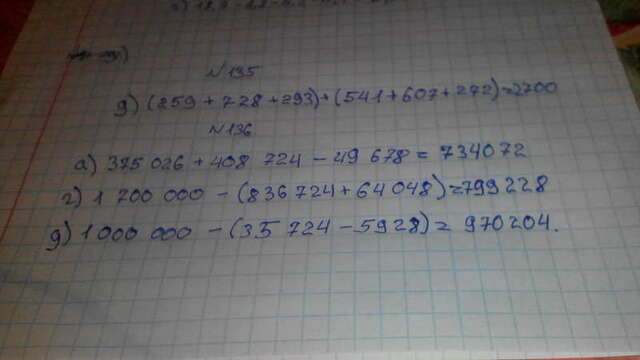 №135
д) (259 + 728 + 293) + (541 + 607 + 272) = 2700
№136
а) 375 026 + 408 724 - 49 678 = 734072
г) 1 700 000 - (836 724 + 64 048) = 799 228
д) 1 000 000 - (35 724 - 5928) = 970 204.